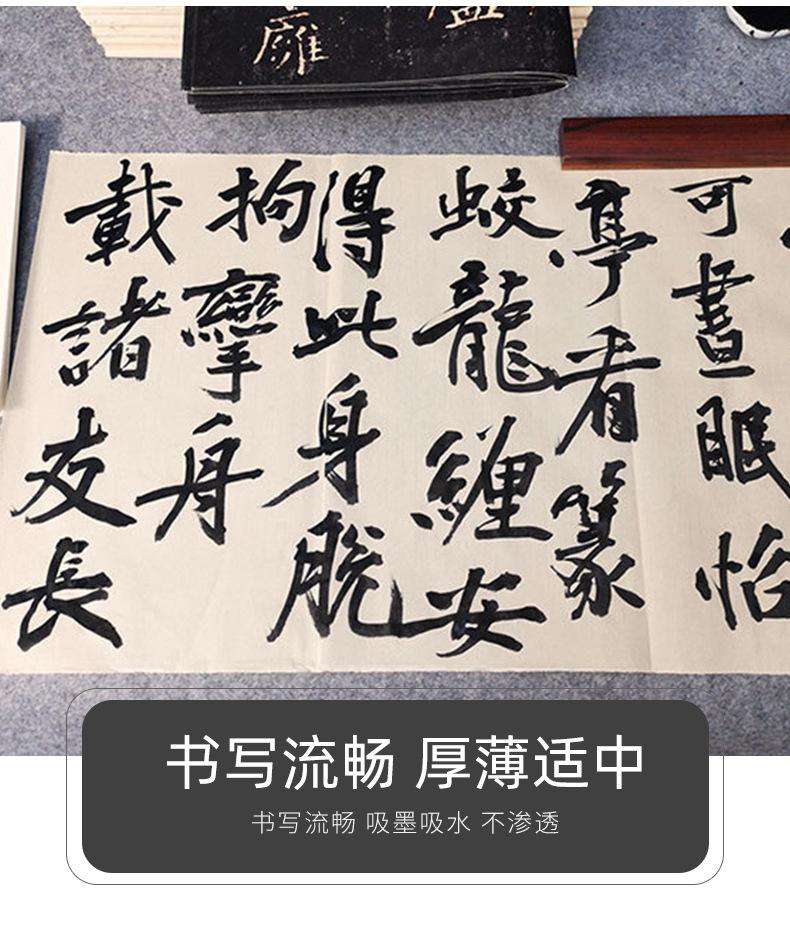 可晝眠怡
亭看篆
蛟龍纏安
得此身脫
拘攣舟
載諸友長
书写流畅 厚薄适中
书写流畅 吸墨吸水 不渗透